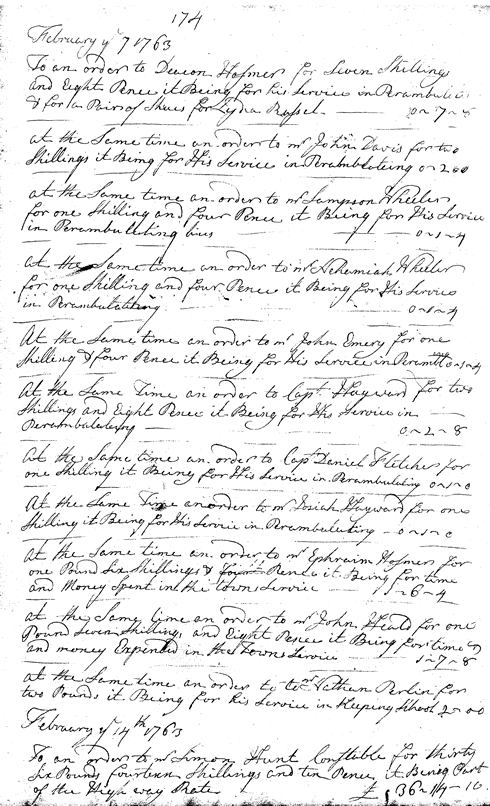 174
February ye 7 1763
To an order to Deacon Hosmer for Seven Shillings
and Eight Pence it Being for his Service in Perambulat
& for a Pair of Shues for Lydia Russel. — 0~7~8
at the Same time an order to mr John Davis for two
Shillings it Being for His Service in Perambulateing 0~2~0
at the Same time an order to mr Sampson Wheeler
for one Shilling and four Pence it Being for His Service
in Perambulating — 0~1~4
at the Same time an order to mr Nehemiah Wheeler
for one Shilling and four Pence it Being for His Service
in Perambulateing — 0~1~4
At the Same time an order to mr John Emery for one
Shilling & four Pence it Being for His Service in Perambu 0~1~4
At the Same Time an order to Capt Hayward for two
Shillings and Eight Pence it Being for His Service in
Perambulateing — 0~2~8
At the Same time an order to Capt Daniel Fletcher for
one Shilling it Being for His Service in Perambulating 0~1~0
At the Same Time an order to mr Josiah Hayward for one
Shilling it Being for His Service in Perambulating — 0~1~0
at the Same time an order to mr Ephraim Hosmer for
one Pound Six Shillings & four Pence it Being for time
and Money Spent in the towns Service — 1~6~4
at the Same time an order to mr John Heald for one
Pound Seven Shillings and Eight Pence it Being for time &
and money Expended in the Towns Service — 1~7~8
at the Same time an order to to mr Nathan Perlin for
two Pounds it Being for his Service in Keeping School 2~0~0
February ye 14th 1763
To an order to mr Simon Hunt Constable for thirty
Six Pounds fourteen Shillings and ten Pence it Being Part
of the High way Rate £ 36~14~10.